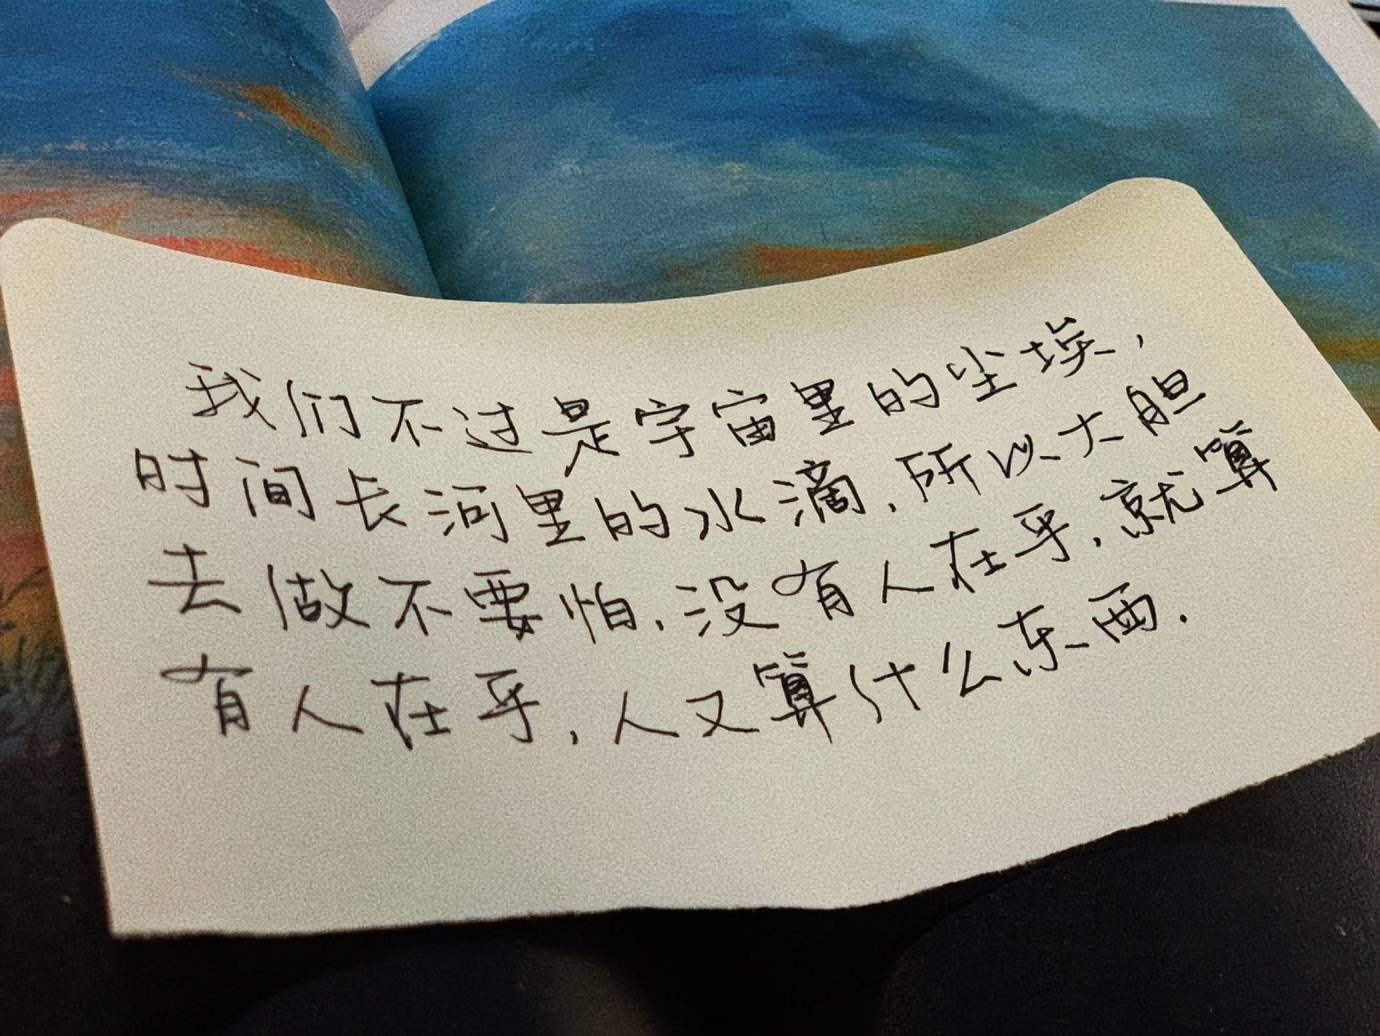 我们不过是宇宙里的尘埃,
时间长河里的水滴,所以大胆
去做不要怕,没有人在乎,就算
有人在乎,人又算什么东西.